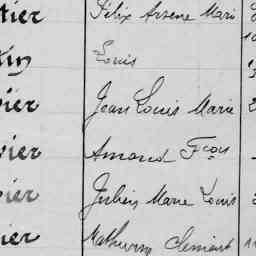 tier Félix Arsène Marie
Louis
ier Jean Louis Marie 2
vier Amand Fçois
ier Julien Marie Louis
ier Mathurin Clément